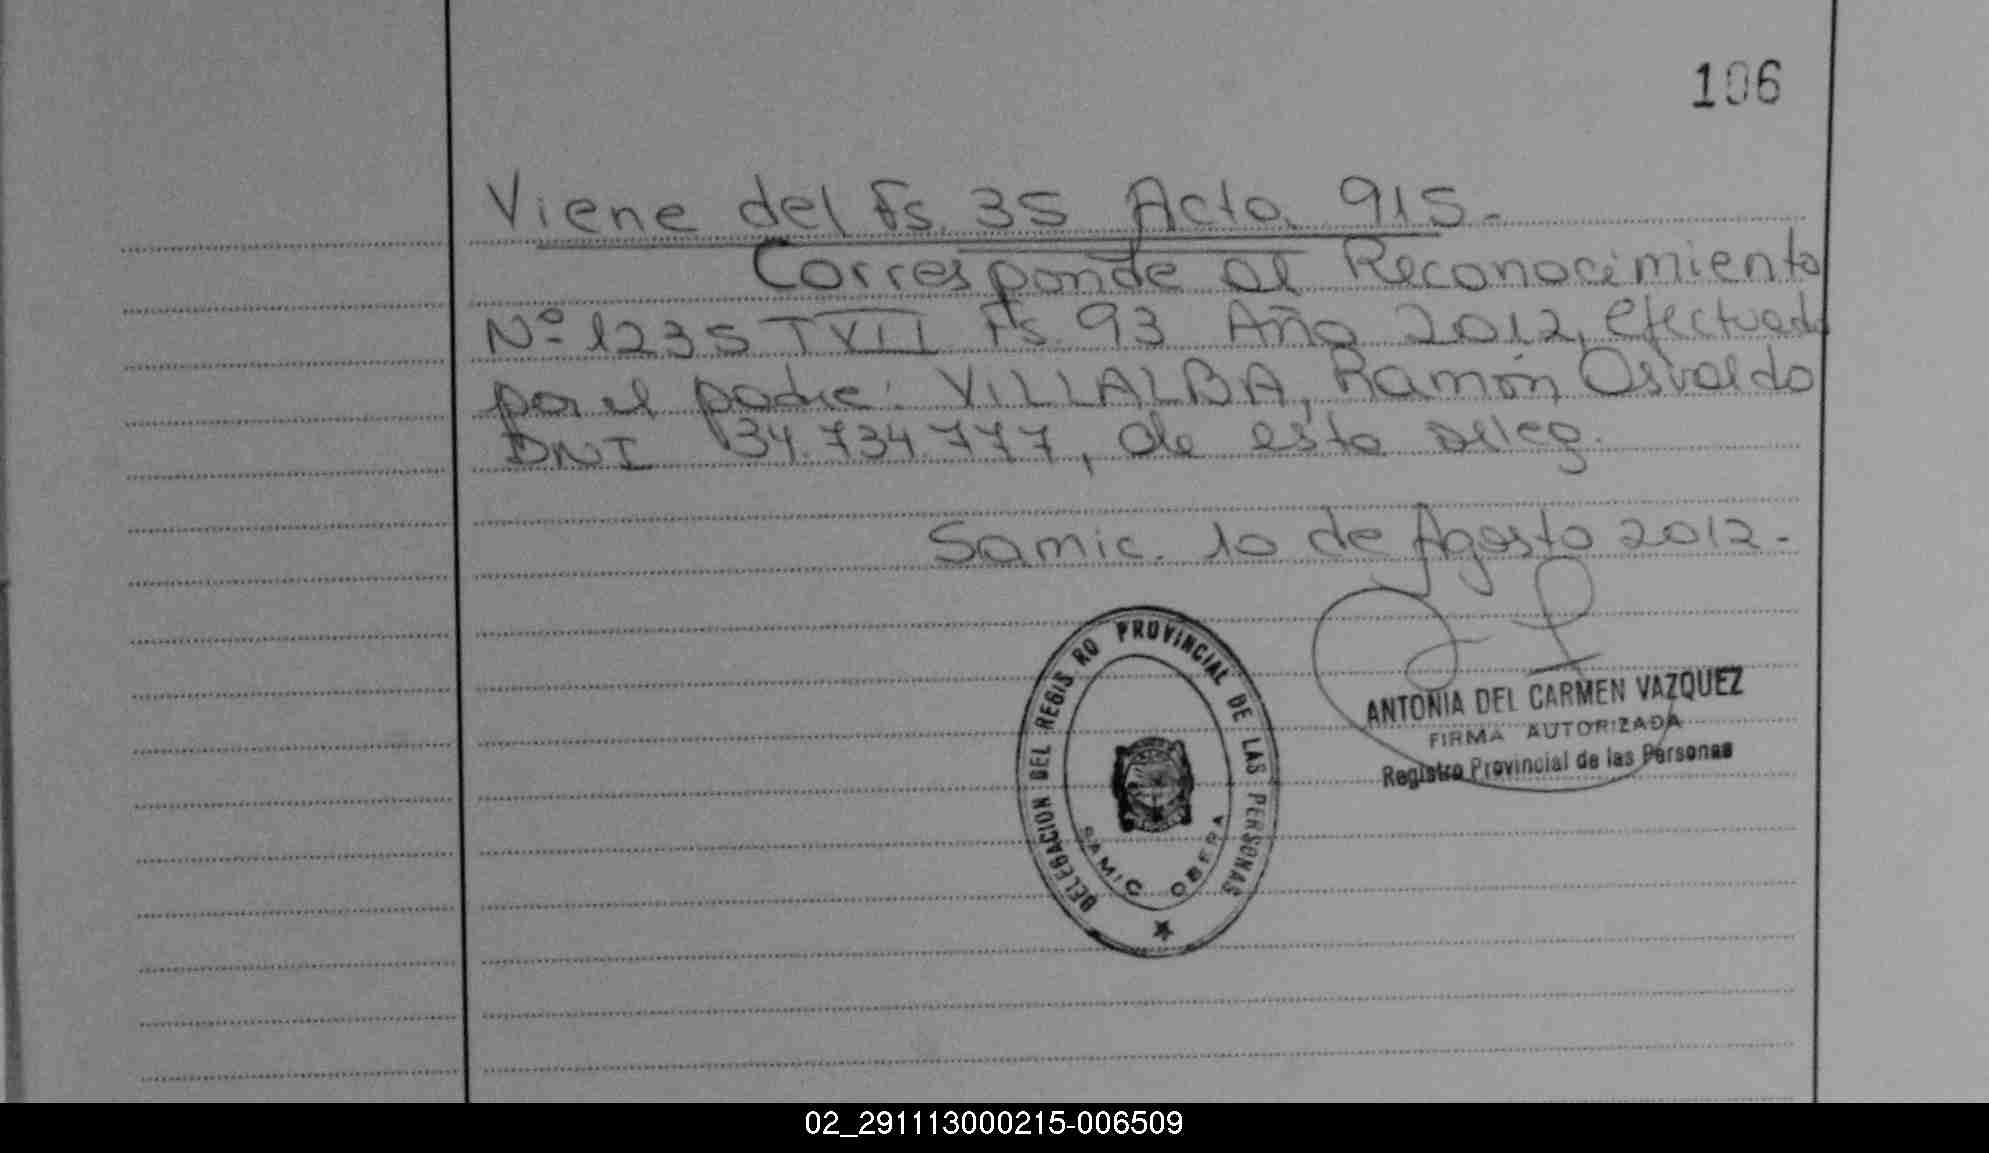 106
Viene del Fs. 35 Acta 915.-
Corresponde al Reconocimiento
Nº 1235 T VII Fs. 93 Año 2012, efectuado
por el padre: VILLALBA, Ramón Osvaldo
DNI 34.734.777, de esta deleg.
Samic. 10 de Agosto 2012.-
DELEGACION DEL REGIS RO PROVINCIAL DE LAS PERSONAS
SAMIC OBERA
ANTONIA DEL CARMEN VAZQUEZ
FIRMA AUTORIZADA
Registro Provincial de las Personas
02_291113000215-006509